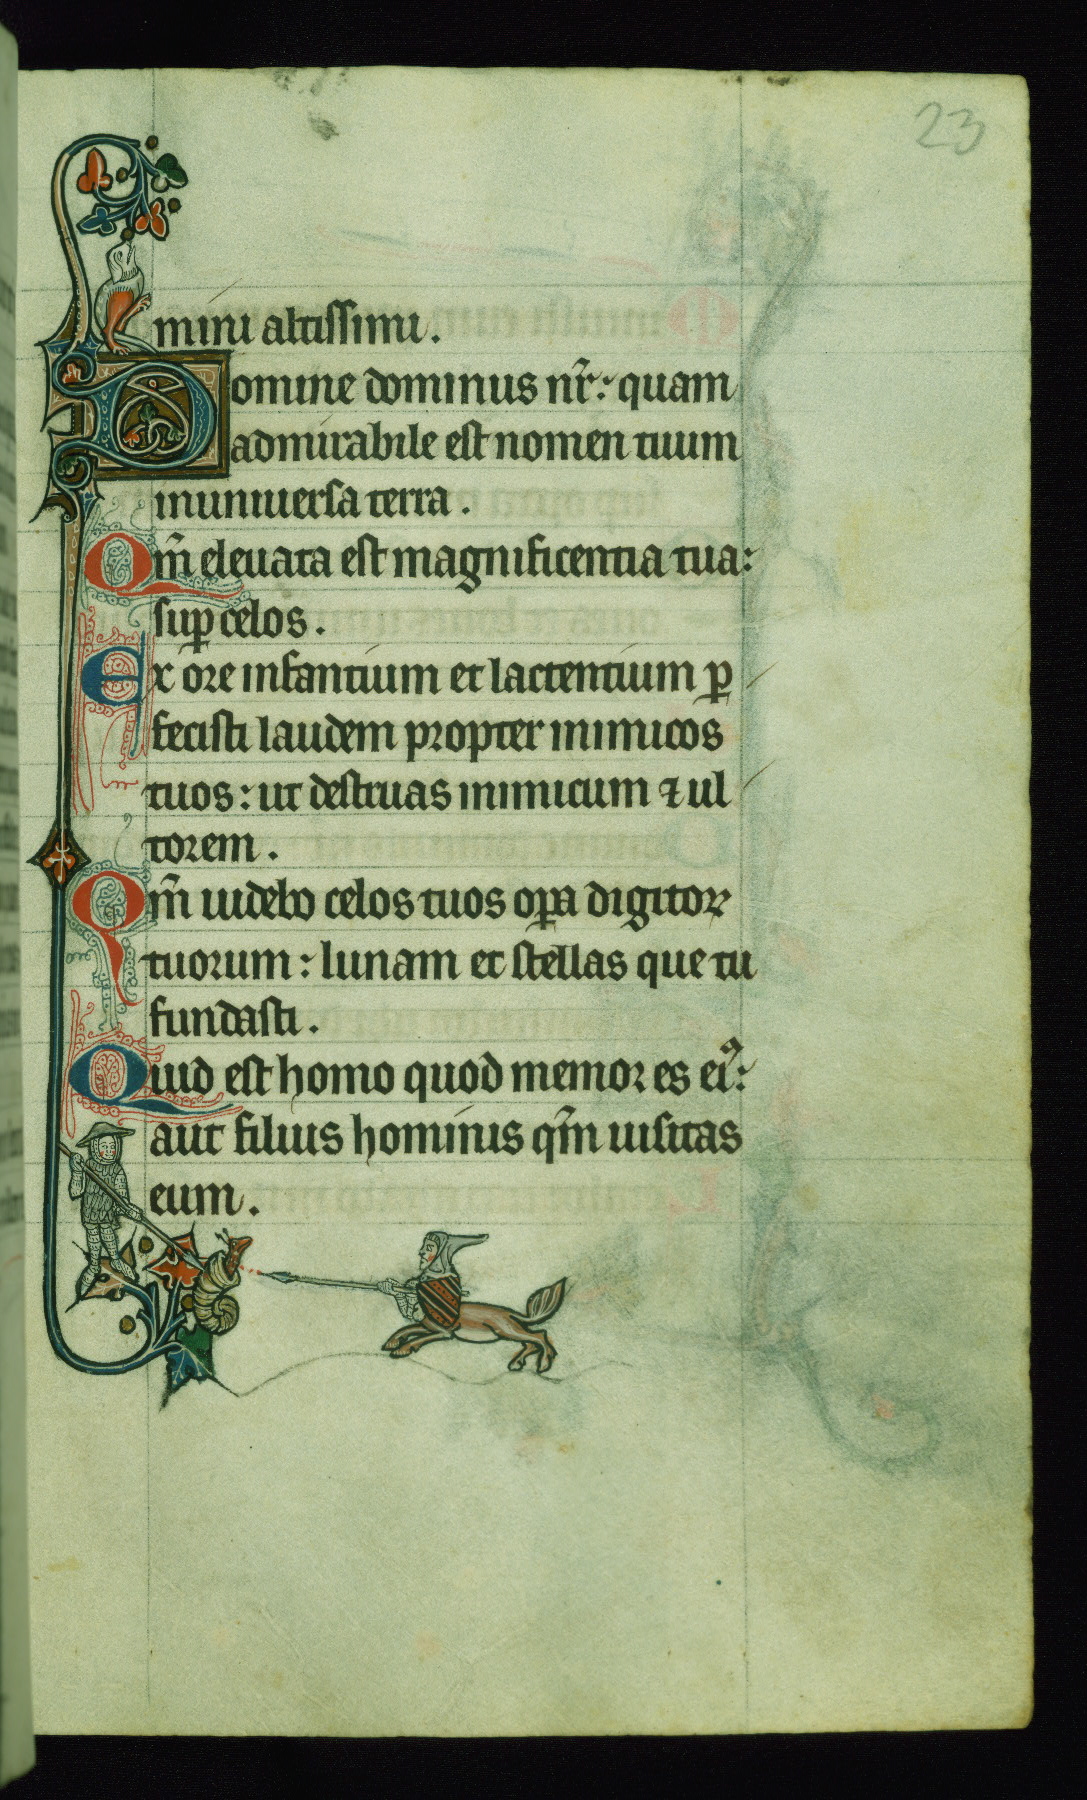 23
mini altissimi.
Domine dominus nr̄: quam
admirabile est nomen tuum
in uniuersa terra.
Qm̄ eleuata est magnificentia tua:
suꝑ celos.
Ex ore infantium et lactentium ꝑ
fecisti laudem propter inimicos
tuos: ut destruas inimicum ⁊ ul
torem.
Qm̄ uidebo celos tuos oꝑa digitoꝝ
tuorum: lunam et stellas que tu
fundasti.
Quid est homo quod memor es eiꝰ:
aut filius hominis qm̄ uisitas
eum.